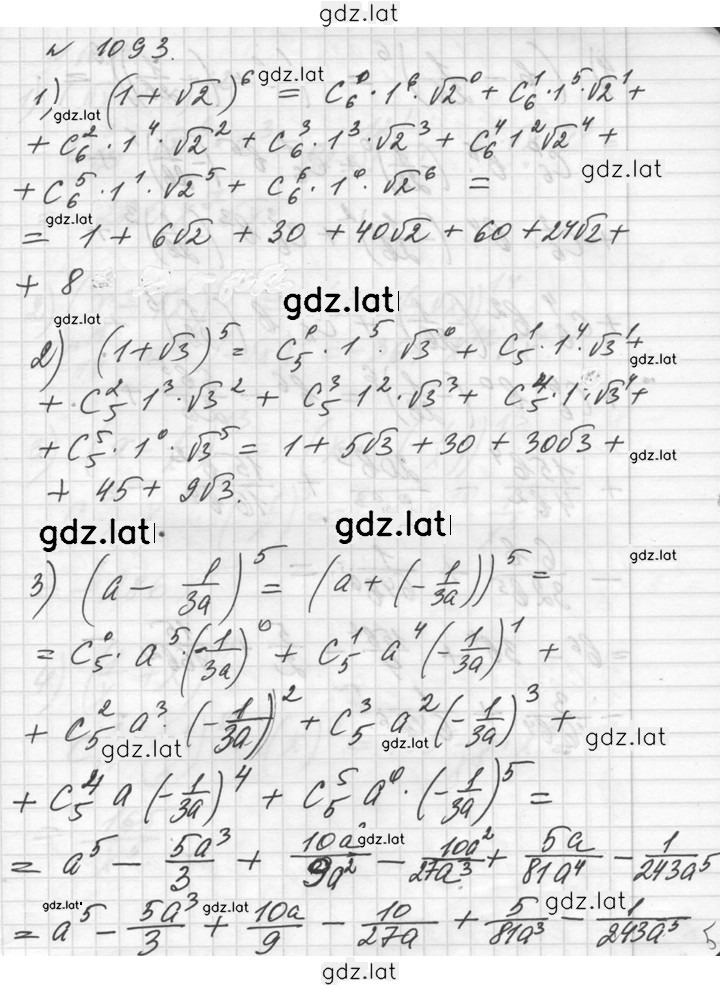 gdz.lat
№ 1093.
1) (1 + √2)^6 gdz.lat = C_6^0 · 1^6 · √2^0 + C_6^1 · 1^5 · √2^1 +
gdz.lat
+ C_6^2 · 1^4 · √2^2 + C_6^3 · 1^3 · √2^3 + C_6^4 1^2 √2^4 +
gdz.lat
+ C_6^5 · 1^1 · √2^5 + C_6^6 · 1^0 · √2^6 =
gdz.lat
= 1 + 6√2 + 30 + 40√2 + 60 + 24√2 +
+ 8
gdz.lat
gdz.lat
2) (1 + √3)^5 = C_5^0 · 1^5 · √3^0 + C_5^1 · 1^4 · √3^1 +
gdz.lat
+ C_5^2 · 1^3 · √3^2 + C_5^3 1^2 · √3^3 + C_5^4 · 1 · √3^4 +
+ C_5^5 · 1^0 · √3^5 = 1 + 5√3 + 30 + 30√3 +
gdz.lat
+ 45 + 9√3.
gdz.lat gdz.lat
gdz.lat
3) (a − 1/3a)^5 = (a + (− 1/3a))^5 =
= C_5^0 · a^5 · (− 1/3a)^0 + C_5^1 a^4 (− 1/3a)^1 +
+ C_5^2 a^3 · (− 1/3a)^2 + C_5^3 a^2 (− 1/3a)^3 +
gdz.lat gdz.lat gdz.lat
+ C_5^4 a (− 1/3a)^4 + C_5^5 a^0 · (− 1/3a)^5 =
gdz.lat
= a^5 − 5a^3/3 + 10a/9a^2 − 10a^2/27a^3 + 5a/81a^4 − 1/243a^5
gdz.lat gdz.lat gdz.lat
= a^5 − 5a^3/3 + 10a/9 − 10/27a + 5/81a^3 − 1/243a^5
5
gdz.lat